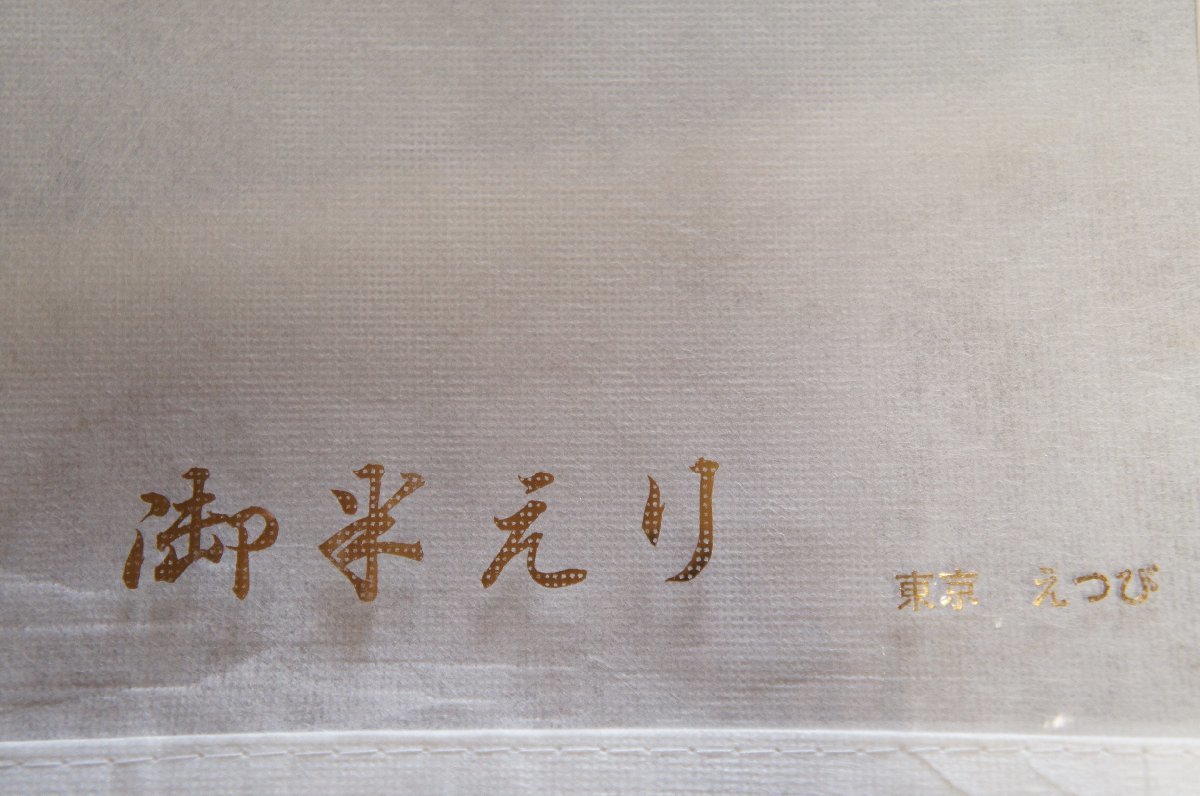 御半えり
東京 えつび